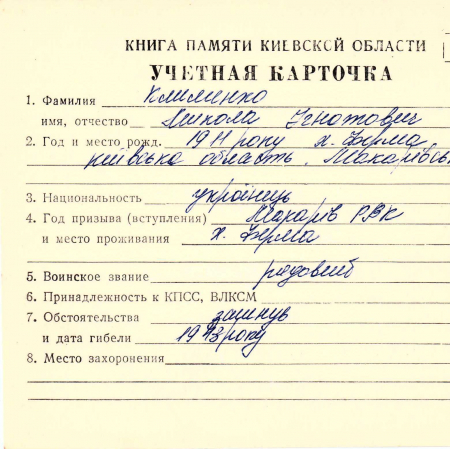 КНИГА ПАМЯТИ КИЕВСКОЙ ОБЛАСТИ
УЧЕТНАЯ КАРТОЧКА
1. Фамилия Клименко
имя, отчество Микола Ігнатович
2. Год и место рожд. 1911 року х. Ферма,
київська область, Макарівсь
3. Национальность українець
4. Год призыва (вступления) Макарів РВК
и место проживания х. Ферма
5. Воинское звание рядовий
6. Принадлежность к КПСС, ВЛКСМ
7. Обстоятельства загинув
и дата гибели 1943 року
8. Место захоронения